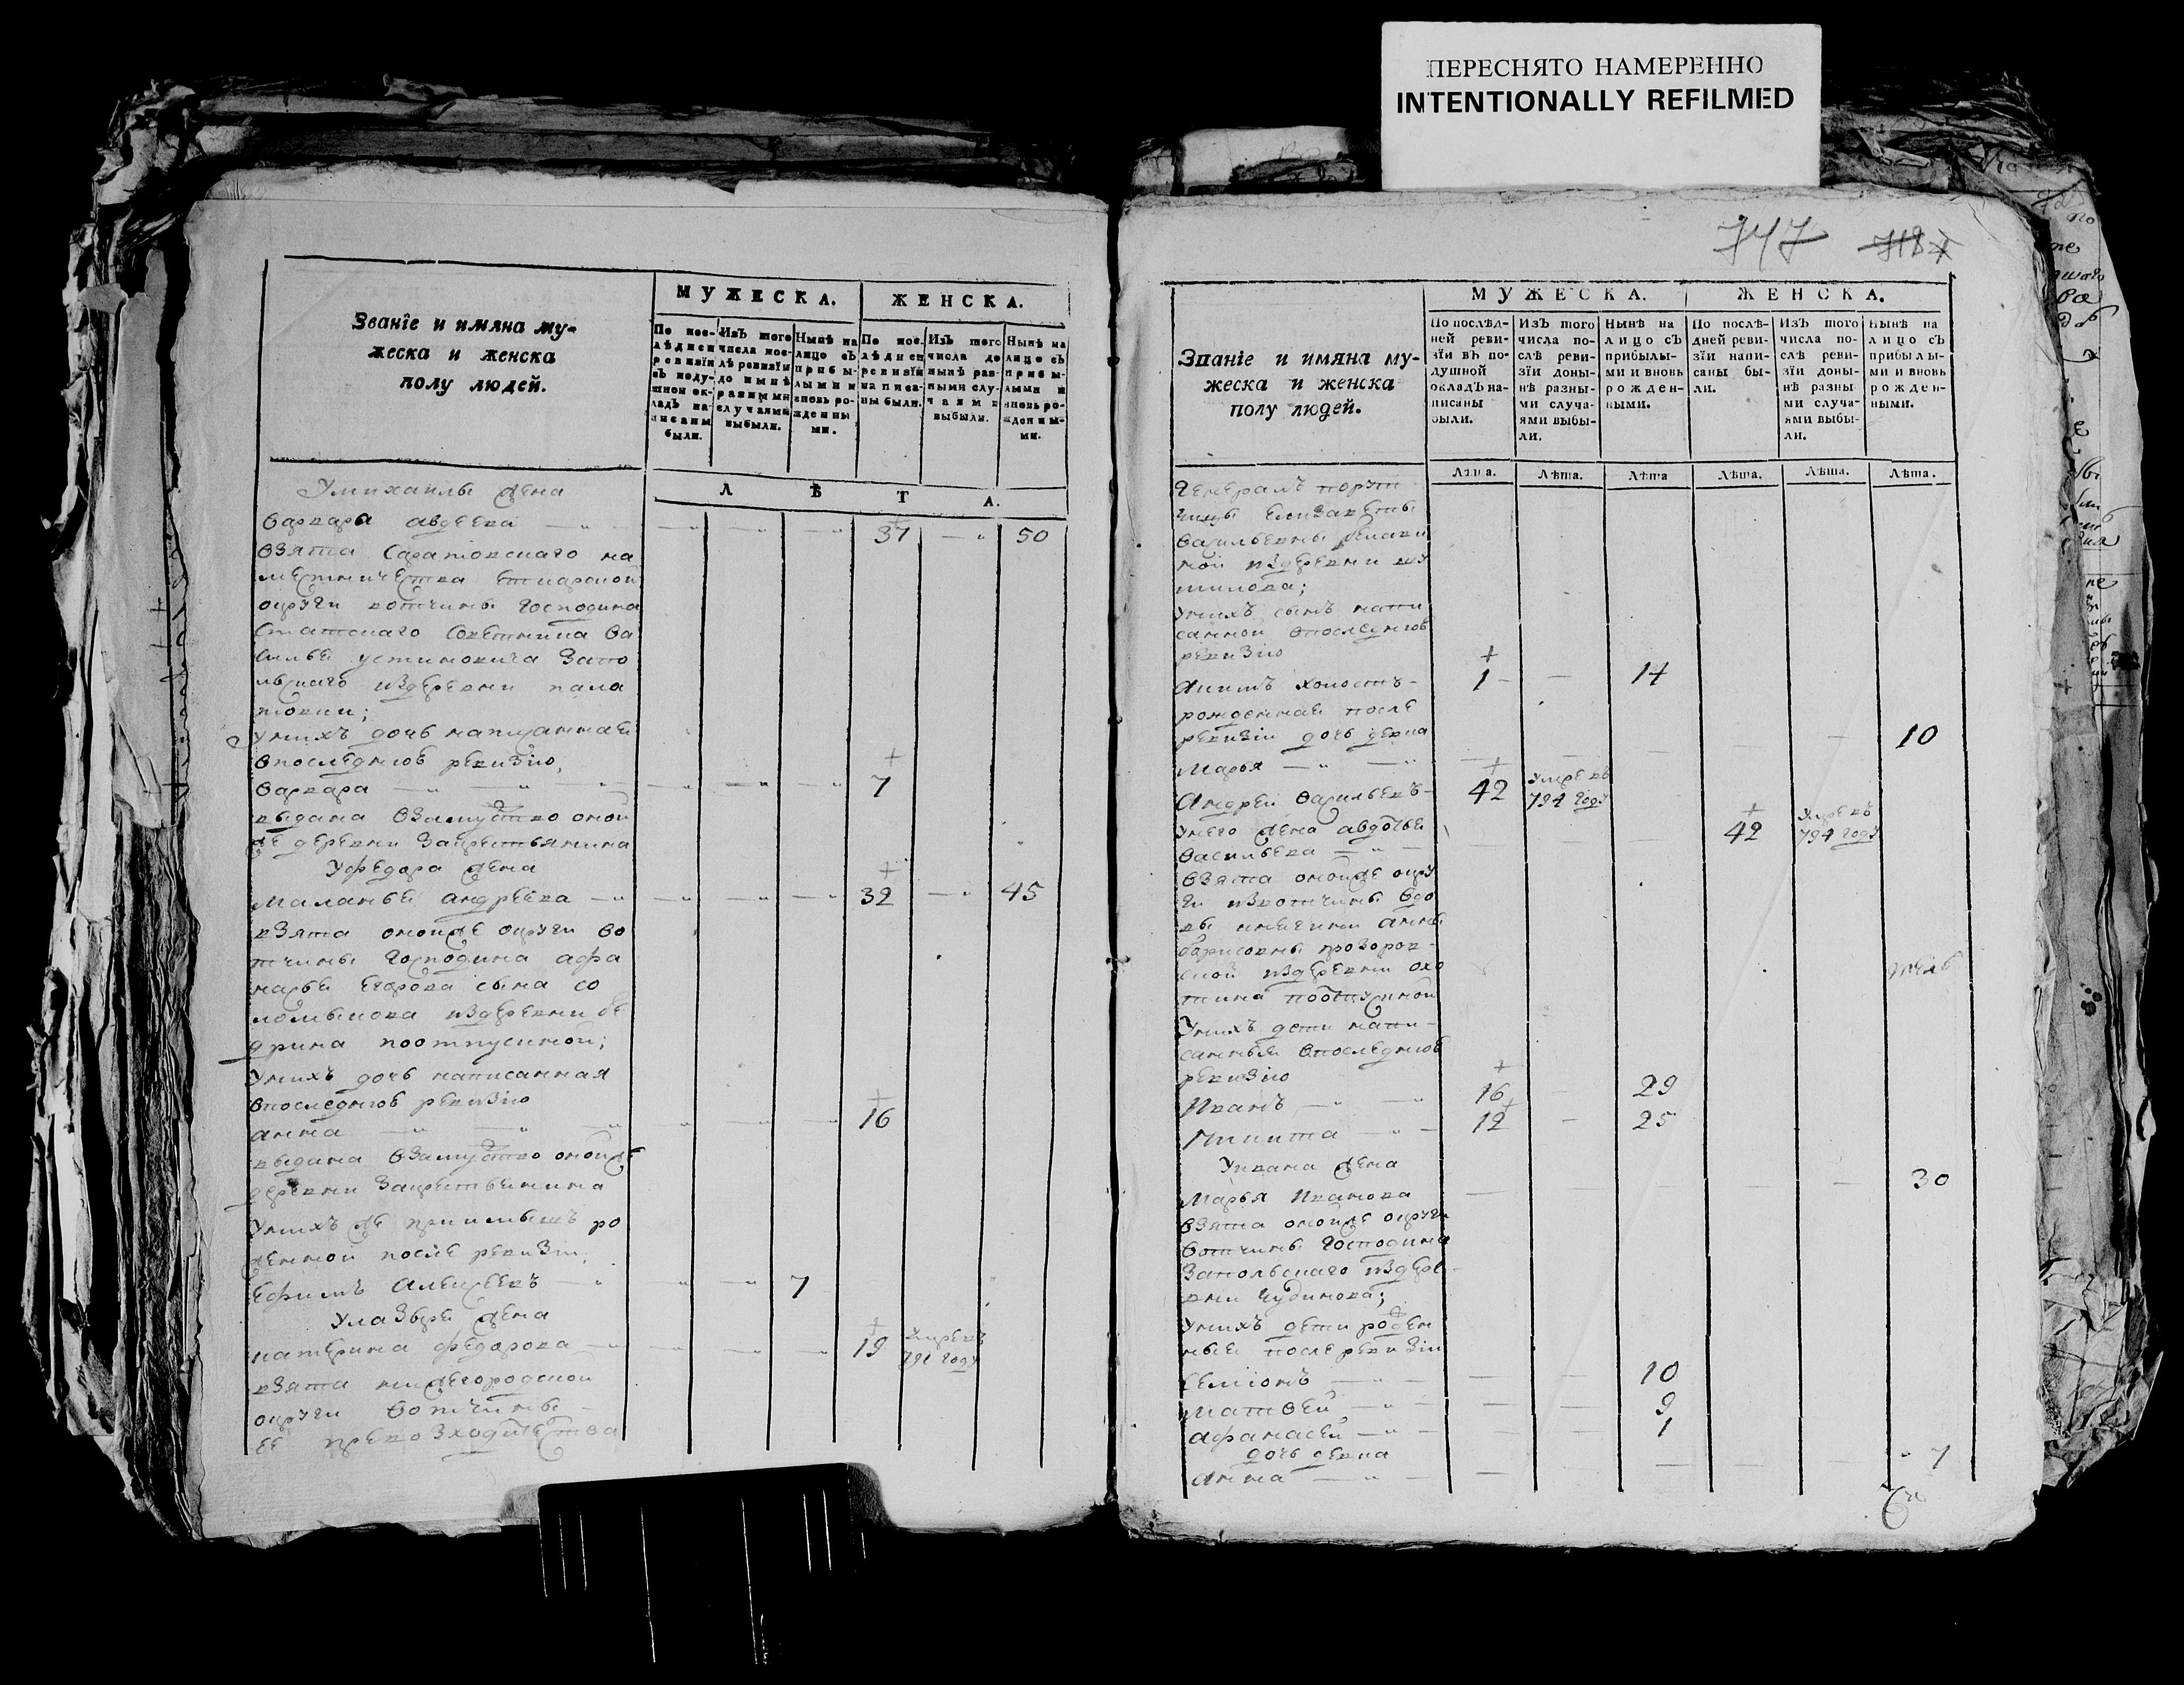 ПЕРЕСНЯТО НАМЕРЕННО
INTENTIONALLY REFILMED
Званїе и имяна му-
жеска и женска
полу людей.
МУЖЕСКА.
ЖЕНСКА.
По пос-
лѣдней
ревизїи
въ поду-
шной ок-
ладъ на-
писаны
были.
Изъ того
числа пос-
лѣ ревизїи
до нынѣ
разными
случаями
выбыли.
Нынѣ на
лицо съ
прибы-
лыми и
вновь ро-
жденны
ми.
По пос-
лѣдней
ревизїи
написа-
ны были.
Изъ того
числа до
нынѣ раз-
ными слу-
чаями
выбыли.
Нынѣ на
лицо съ
прибы-
лыми и
вновь ро-
жденны-
ми.
ЛѢТА.
Умихаилы жена
варвара авдеева 37 50
взята Саратовскаго на
местничества
округи вотчины Господина
статскаго Советника Ва
силья устиновича Запо
льскаго издеревни пала
товки;
унихъ дочь написанная
впоследнюю ревизию,
варвара 7
выдана взамужство оной
же деревни Закрестьянина
Уфедора жена
маланья андреева 32 45
взята оной же округи во
тчины Господина афа
насья Егорова сына со
издеревни бе
дрина поотпускной;
Унихъ дочь написанная
впоследнюю ревизию
анна 16
выдана взамужство оной же
деревни Закрестьянина
Унихъ же приимышъ ро
жденной после ревизии,
Ефимъ Алексеевъ 7
Улазаря жена
катерина федорова 19 Умре въ
791 году
взята нижегородской
округи вотчины
ЕЕ превозходительства
747
Званїе и имяна му-
жеска и женска
полу людей.
МУЖЕСКА.
ЖЕНСКА.
По послѣд-
ней реви-
зїи въ по-
душной
окладъ на-
писаны
были.
Изъ того
числа по-
слѣ реви-
зїи доны-
нѣ разны-
ми случа-
ями выбы-
ли.
Нынѣ на
лицо съ
прибылы-
ми и вновь
рожден-
ными.
По послѣ-
дней реви-
зїи напи-
саны бы-
ли.
Изъ того
числа по-
слѣ реви-
зїи доны-
нѣ разны-
ми случа-
ями выбы-
ли.
Нынѣ на
лицо съ
прибылы-
ми и вновь
рожден-
ными.
Лѣта. Лѣта. Лѣта Лѣта. Лѣта. Лѣта.
Генералъ поруч
чицы Елизаветы
васильевны
ной издеревни шу
тилова;
унихъ сынъ напи
санной впоследнюю
ревизию
холостъ 1 14
рожденная после
ревизии дочь девка
Марья 10
Андрей васильевъ 42 Умре въ
794 году
унего жена авдотья
васильева 42 Умре въ
794 году
взята оной же окру
ги извотчины вдо
вы княгини анны
борисовны прозоров
ской издеревни охо
тина поотпускной
Унихъ дети напи
санные впоследнюю
ревизию
Иванъ 16 29
Никита 12 25
Уивана жена
Марья Иванова 30
взята оной же округи
вотчины Господина
Запольскаго издере
вни Чудинова;
Унихъ дети рожден
ные после ревизии
Семионъ 10
Матвей 9
афанасей 1
дочь девка
анна 7